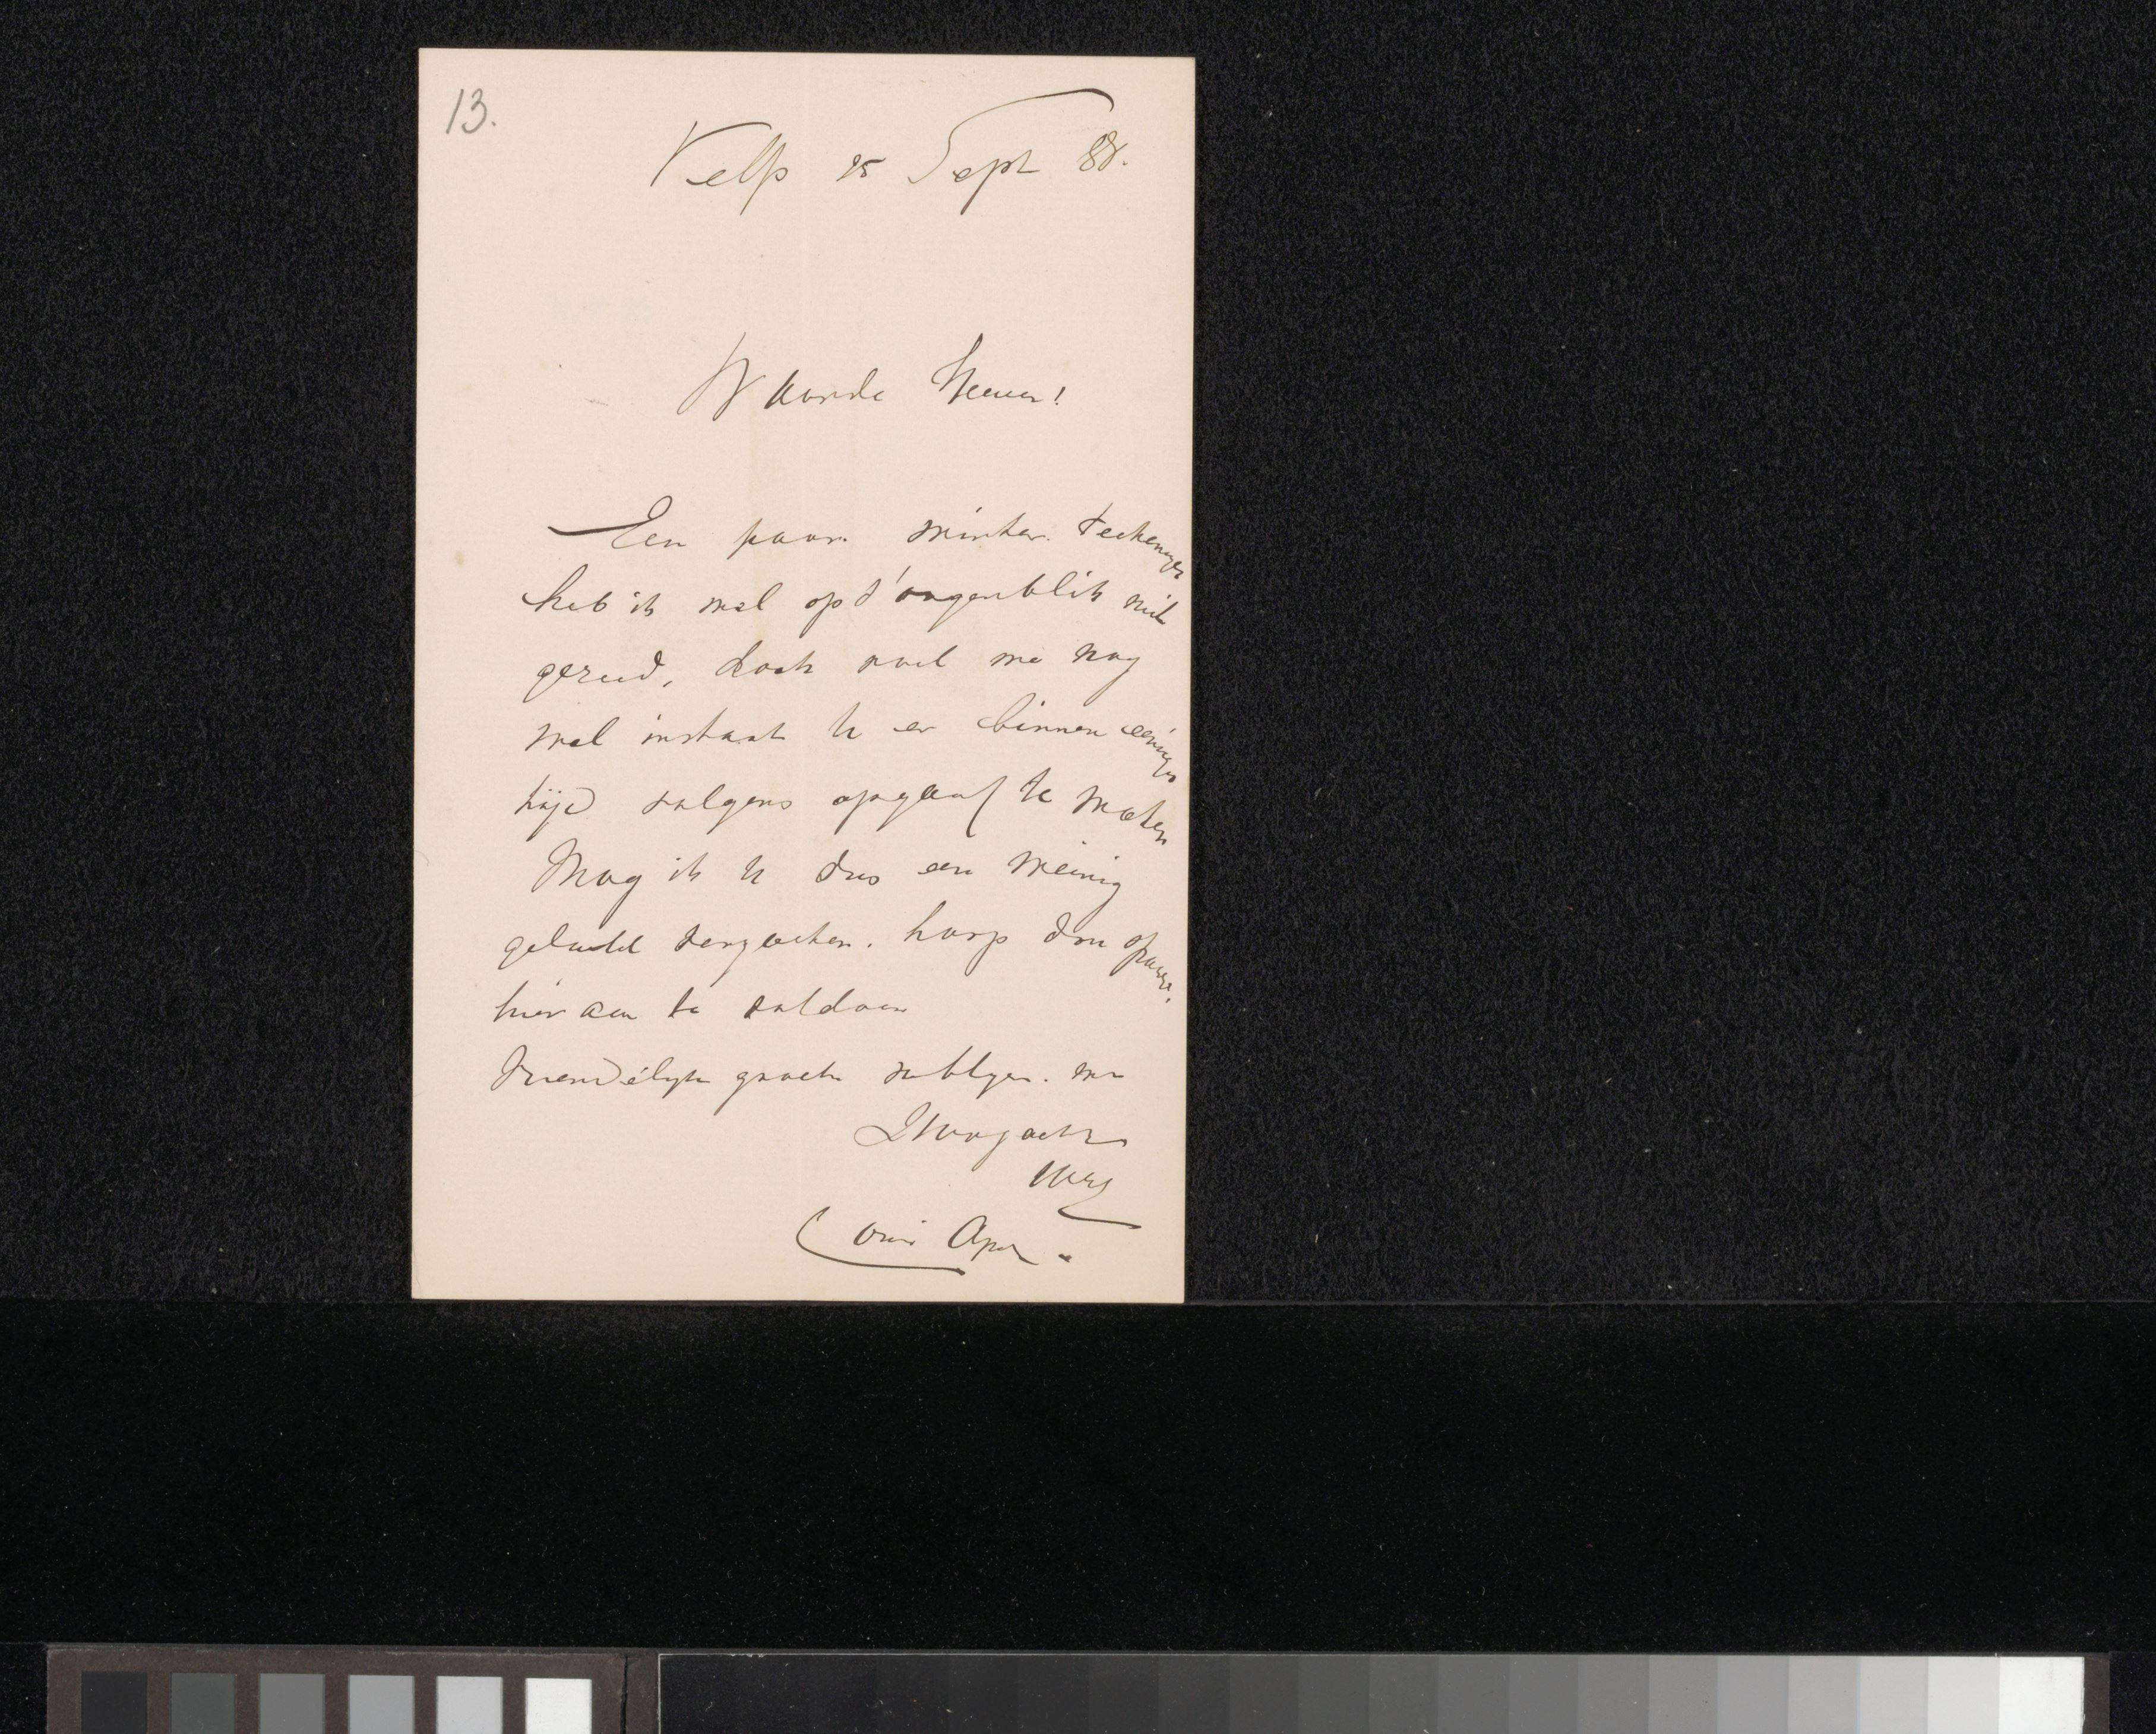 13.
Velp 25 Sept 88.
Waarde Heeren!
Een paar winter teekeningen
heb ik wel op 't oogenblik niet
gereed, doch voel me nog
wel instaat U er binnen eenigen
tijd volgens opgaaf te maken
Mag ik U dus een weinig
geduld verzoeken. hoop dan
hieraan te voldoen
Vriendelijke groete
Hoogacht
UEd
Louis Apol.